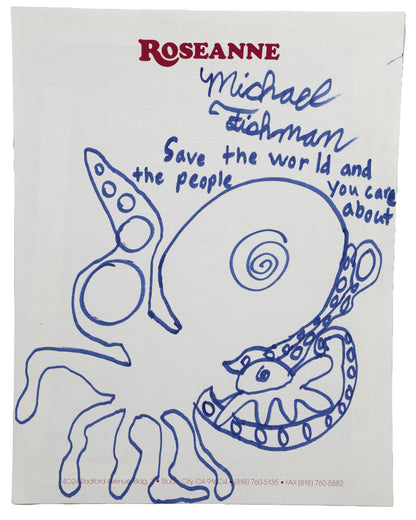 ROSEANNE
Michael
Fishman
Save the world and
the people you care
about
4024 Radford Avenue, Bldg. • Studio City, CA 91604 • (818) 760-5135 • FAX (818) 760-5882